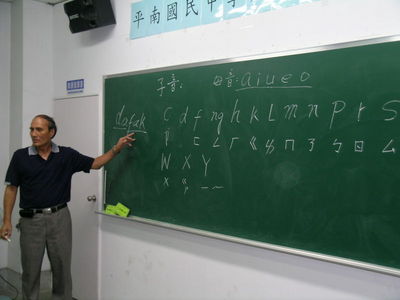 平南國民中
子音: 母音: a i u e o
dafak C d f ng h k L m n p r s
ㄗ ㄈ ㄥ ㄏ ㄍ ㄌ ㄇ ㄋ ㄅ ㄖ ㄙ
W X Y
ㄨ